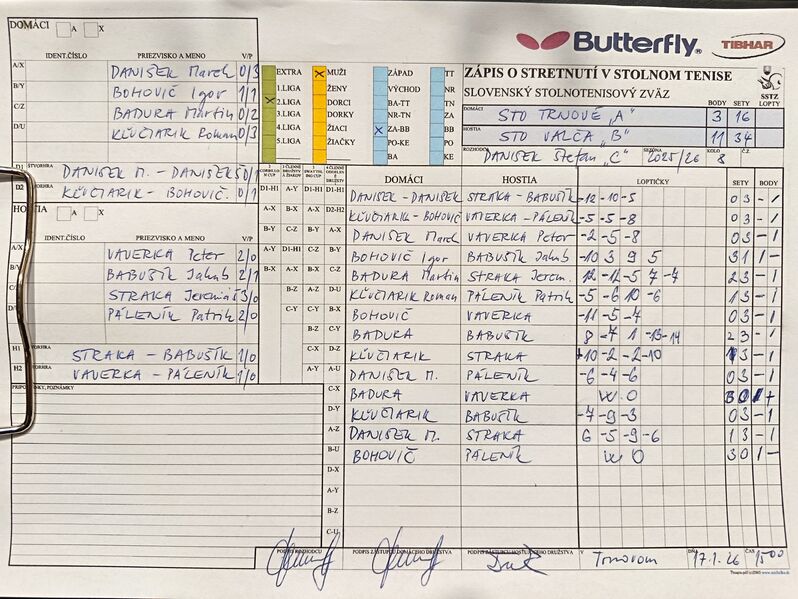 Butterfly. TIBHAR
DOMÁCI A X
IDENT.ČÍSLO PRIEZVISKO A MENO V/P
A/X DANIŠEK Marek 0/3
B/Y BOHOVIČ Igor 1/1
C/Z BADURA Martin 0/2
D/U KĽÚČIARIK Roman 0/3
D1 ŠTVORHRA DANIŠEK M. - DANIŠEK Š 0/1
D2 KĽÚČIARIK - BOHOVIČ 0/1
HOSTIA A X
IDENT.ČÍSLO PRIEZVISKO A MENO V/P
A/X VAVERKA Peter 2/0
B/Y BABUŠÍK Jakub 2/1
C/Z STRAKA Jeremiáš 3/0
D/U PÁLENÍK Patrik 2/0
H1 ŠTVORHRA STRAKA - BABUŠÍK 1/0
H2 VAVERKA - PÁLENÍK 1/0
PRIPOMIENKY, POZNÁMKY
EXTRA MUŽI ZÁPAD TT
1.LIGA ŽENY VÝCHOD NR
X 2.LIGA DORCI BA-TT TN
3.LIGA DORCI NR-TN ZA
4.LIGA ŽIACI X ZA-BB BB
5.LIGA ŽIAČKY PO-KE PO
BA KE
ZÁPIS O STRETNUTÍ V STOLNOM TENISE
SLOVENSKÝ STOLNOTENISOVÝ ZVÄZ SSTZ
DOMÁCI STO TRNOVÉ „A" BODY 3 SETY 16 LOPTY
HOSTIA STO VALČA „B" 11 34
ROZHODCA DANIŠEK Štefan „C" SEZÓNA 2025/26 KOLO 8 Č.Z.
DOMÁCI HOSTIA LOPTIČKY SETY BODY
D1-H1 A-Y D1-H1 D1-H1 DANIŠEK - DANIŠEK STRAKA - BABUŠÍK -12 -10 -5 0 3 - 1
A-X B-X A-X D2-H2 KĽÚČIARIK - BOHOVIČ VAVERKA - PÁLENÍK -5 -5 -8 0 3 - 1
B-Y C-Z B-Y A-X DANIŠEK Marek VAVERKA Peter -2 -5 -8 0 3 - 1
A-Y D1-H1 C-Z B-Y BOHOVIČ Igor BABUŠÍK Jakub -10 3 9 5 3 1 1 -
B-X A-X B-X C-Z BADURA Martin STRAKA Jerem. 12 -12 -5 7 -7 2 3 - 1
B-Z A-Z D-U KĽÚČIARIK Roman PÁLENÍK Patrik -5 -6 10 -6 1 3 - 1
C-Y C-Y B-X BOHOVIČ VAVERKA -11 -5 -7 0 3 - 1
B-Z C-Y BADURA BABUŠÍK 8 -7 1 -13 -14 2 3 - 1
C-X D-Z KĽÚČIARIK STRAKA 10 -2 -2 -10 1 3 - 1
A-Y A-U DANIŠEK M. PÁLENÍK -6 -4 -6 0 3 - 1
C-X BADURA VAVERKA W O 3 0 1
D-Y KĽÚČIARIK BABUŠÍK -7 -9 -3 0 3 - 1
A-Z DANIŠEK M. STRAKA 6 -5 -9 -6 1 3 - 1
B-U BOHOVIČ PÁLENÍK W O 3 0 1 -
D-X
A-Y
B-Z
C-U
PODPIS ROZHODCU PODPIS ZÁSTUPCU DOMÁCEHO DRUŽSTVA PODPIS ZÁSTUPCU HOSŤUJÚCEHO DRUŽSTVA V Trnovom DŇA 17.1.26 ČAS 15 00